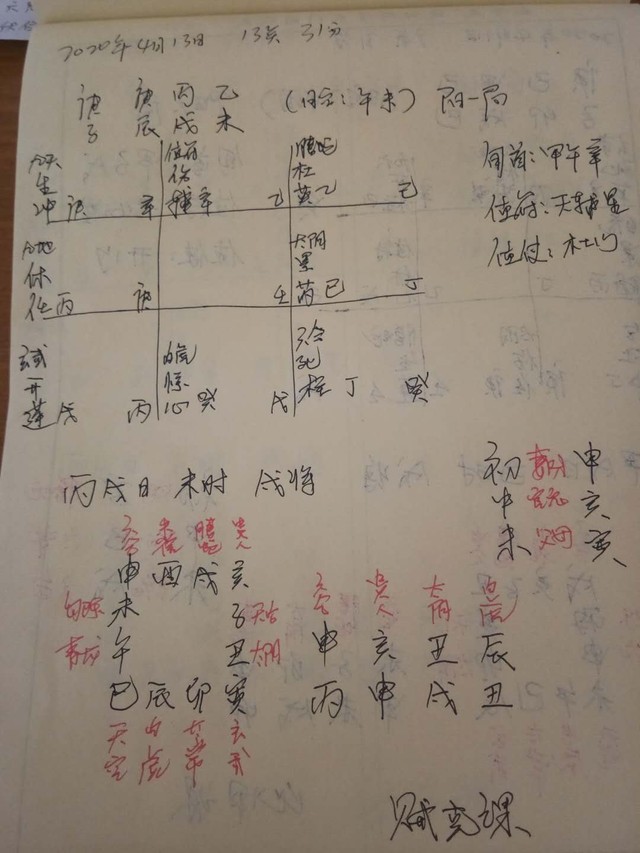 2020年4月13日 13点31分
庚 庚 丙 乙 (日空:午未) 阳一局
子 辰 戌 未
旬首:甲午辛
值符:天辅星
值使:杜门
九天
生
冲 庚 辛
值符
伤
辅 辛 乙
腾蛇
杜
英 乙 己
九地
休
任 丙 庚
壬
太阴
景
芮 己 丁
玄武
开
蓬 戊 丙
白虎
惊
心 癸 戊
六合
死
柱 丁 癸
丙戌日 未时 戌将
初 申
中 亥
末 父母 寅
六合 朱雀 腾蛇 贵人
申 酉 戌 亥
勾陈 未 子 天后
青龙 午 丑 太阴
巳 辰 卯 寅
天空 白虎 太常 玄武
六合 贵人 太阴
申 亥 丑 辰
丙 申 戌 丑